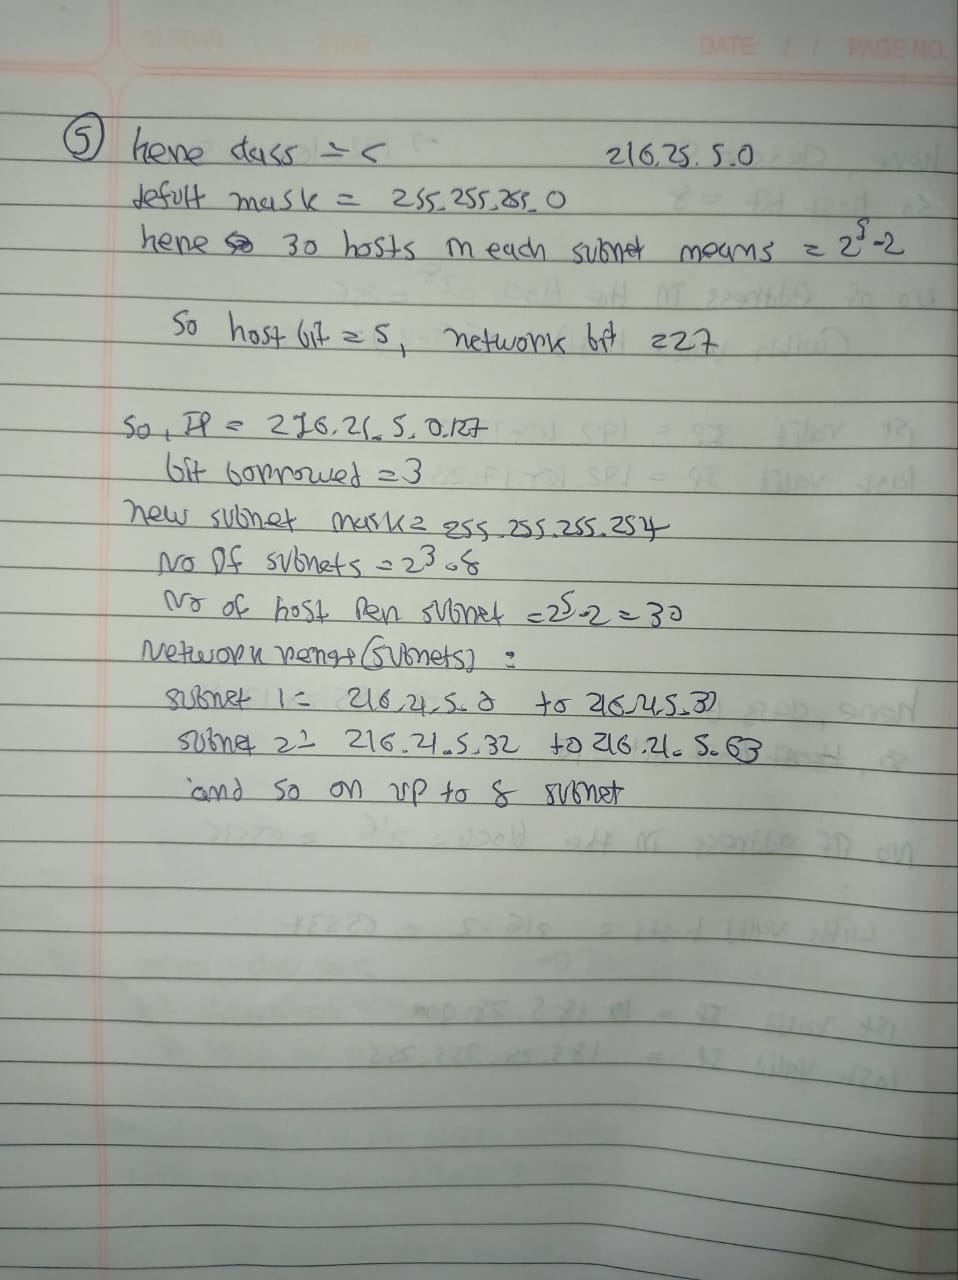 DATE: / / PAGE NO.
⑤ here class = c 216.25.5.0
defult mask = 255.255.255.0
here so 30 hosts in each subnet means = 2^5-2
So host bit = 5, network bit = 27
So, IP = 216.21.5.0/27
bit borrowed = 3
new subnet mask = 255.255.255.254
No Of subnets = 2^3 = 8
No of host Per subnet = 2^5-2 = 30
Network (Subnets) :
subnet 1 = 216.21.5.0 to 216.21.5.31
subnet 2 = 216.21.5.32 to 216.21.5.63
and so on up to 8 subnet